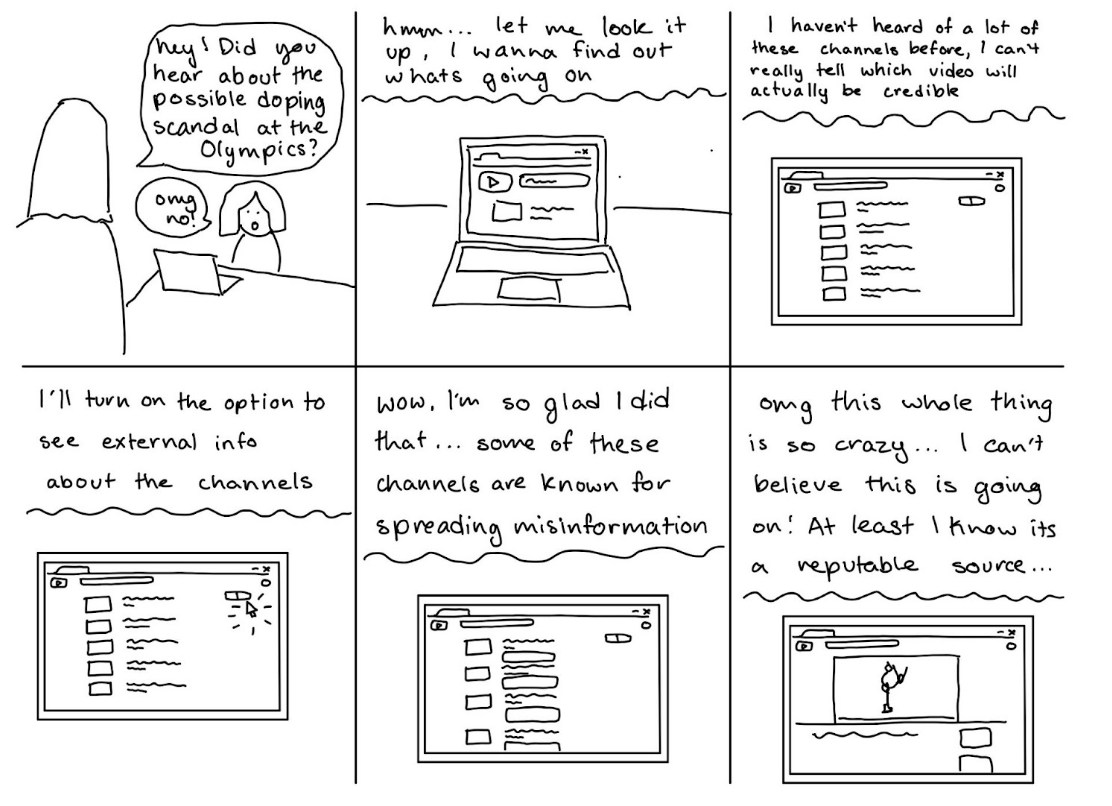 hey! Did you
hear about the
possible doping
scandal at the
Olympics?
omg
no!
hmm... let me look it
up, I wanna find out
whats going on
I haven't heard of a lot of
these channels before, I can't
really tell which video will
actually be credible
I'll turn on the option to
see external info
about the channels
wow, I'm so glad I did
that... some of these
channels are known for
spreading misinformation
omg this whole thing
is so crazy... I can't
believe this is going
on! At least I know its
a reputable source...